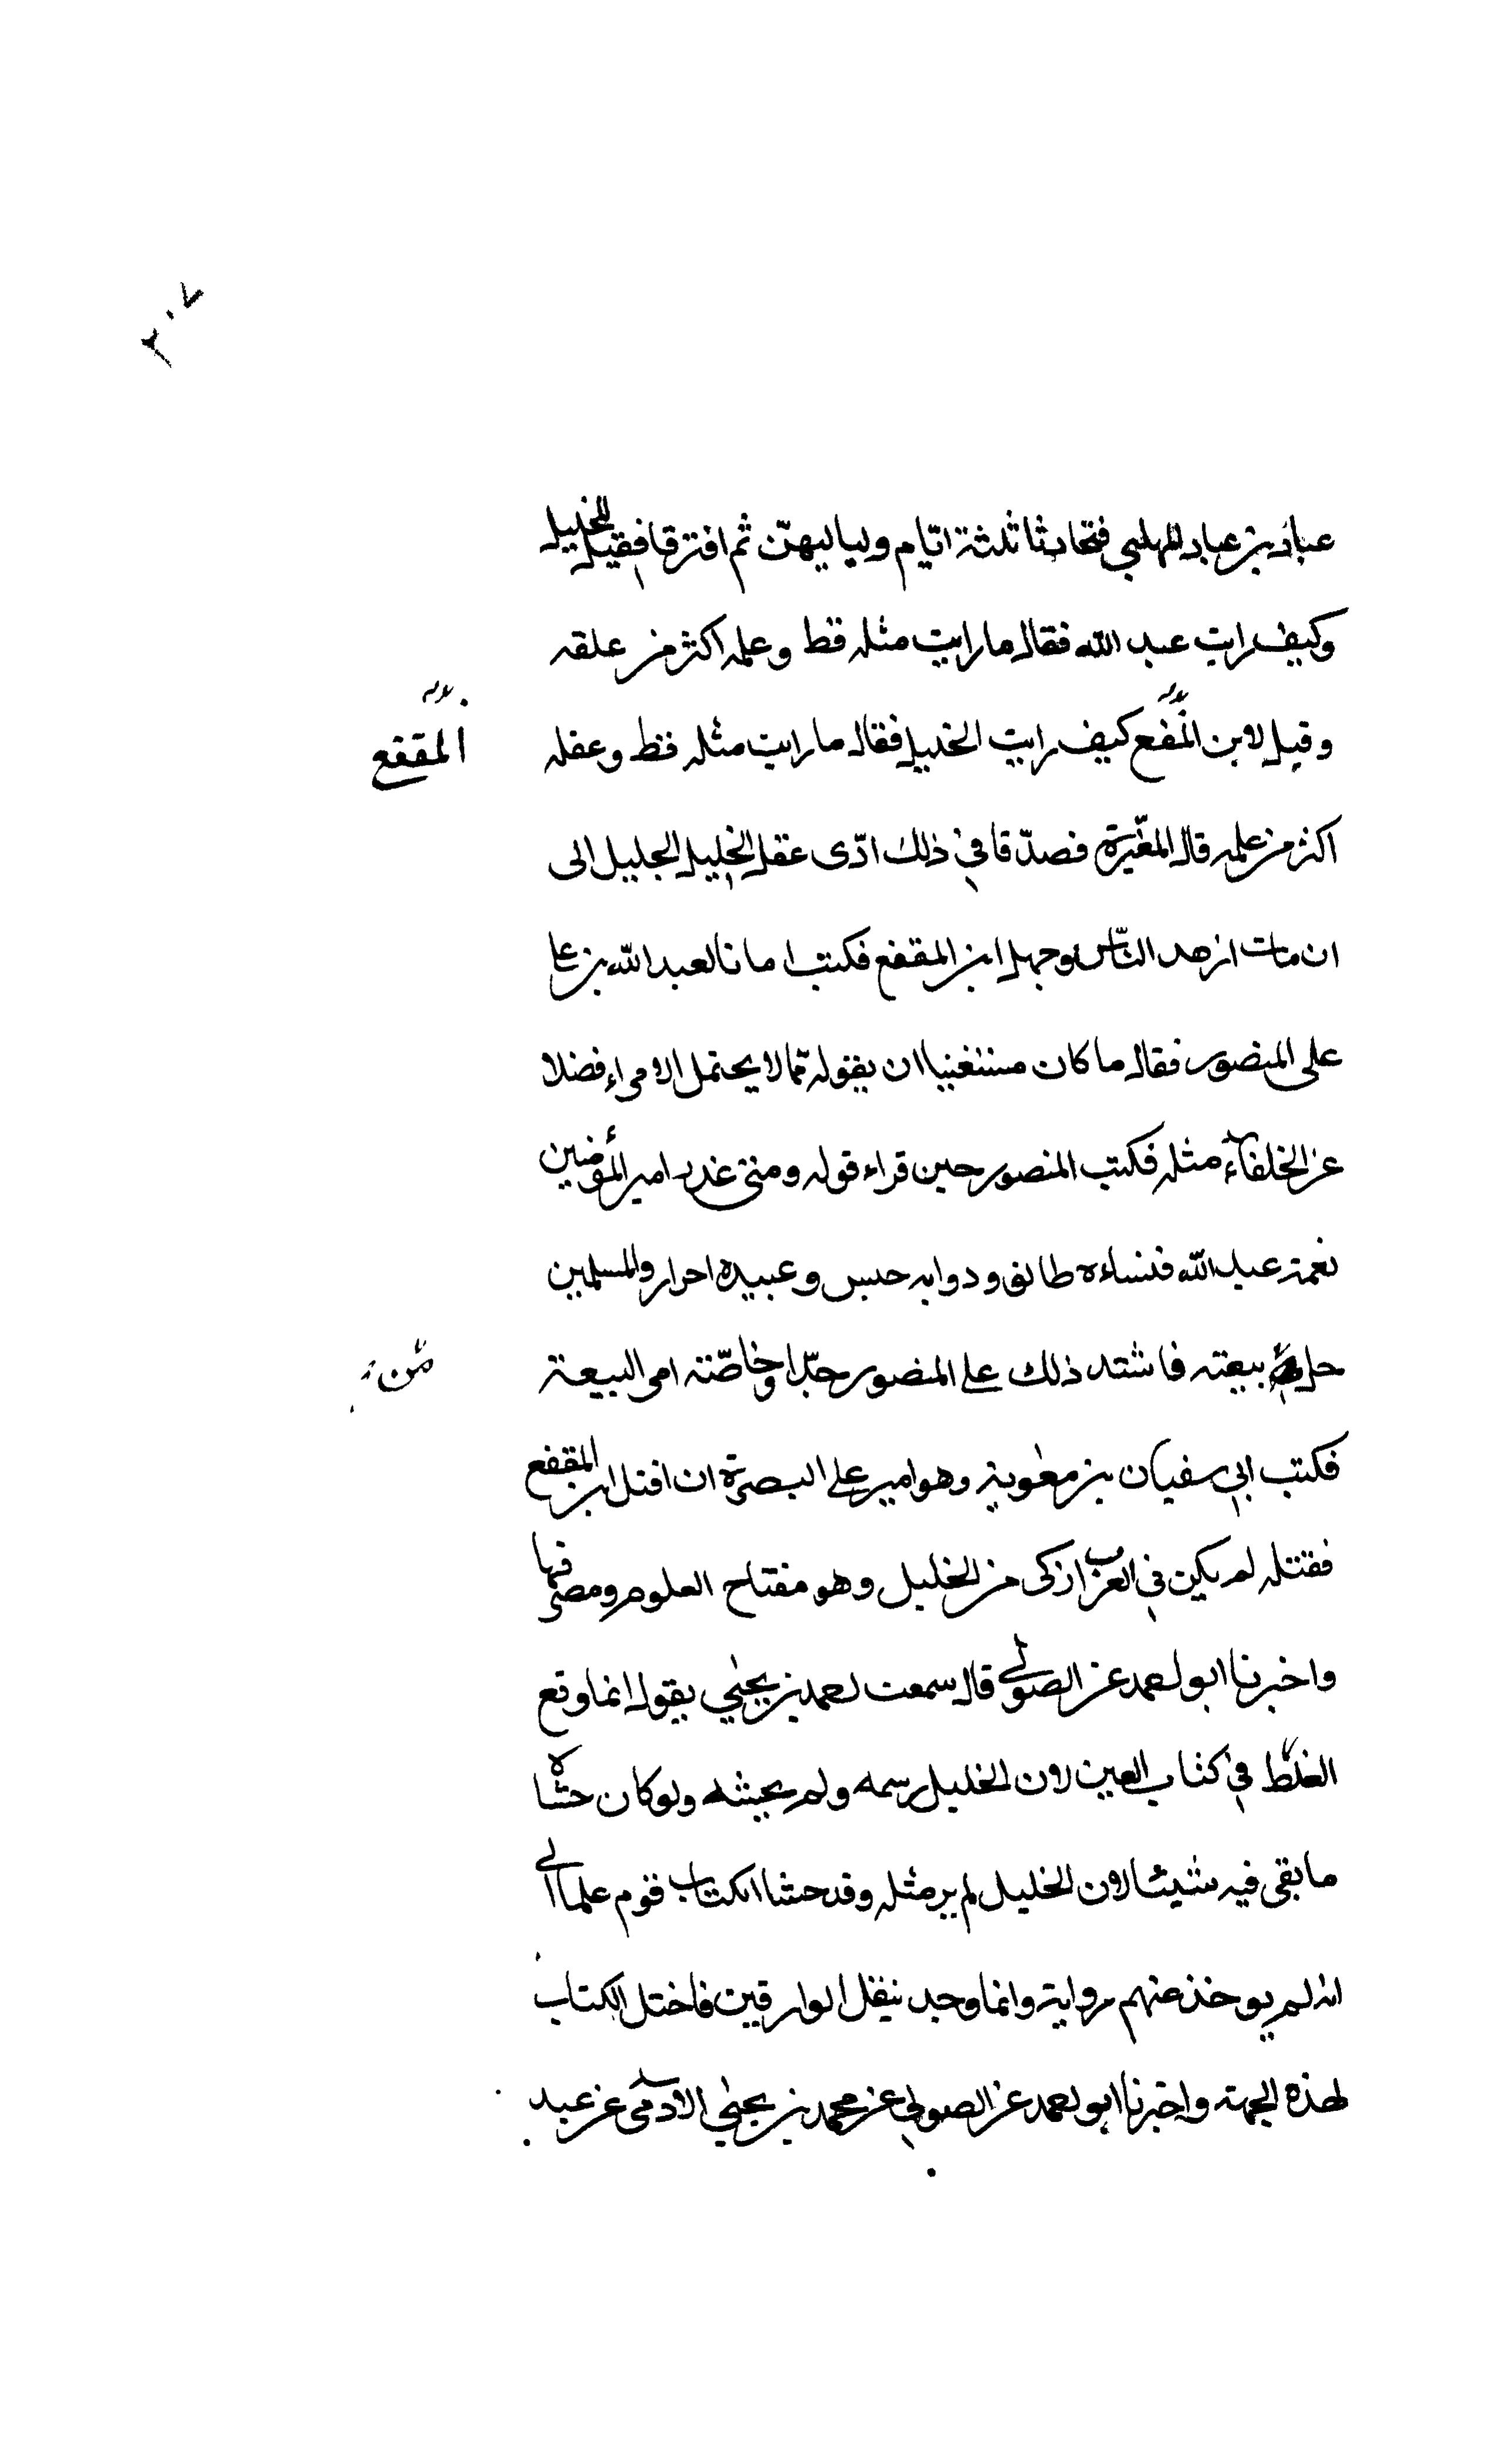 ٢٠٧
عباد بن عباد المهلبي فتحادثا ثلثة ايّام ولياليهنّ ثم افترقا فقيل للخليل
وكيف رايت عبد الله فقال ما رايت مثله قط وعلمه اكثر من عقله
وقيل لابن المقفع كيف رايت الخليل فقال ما رايت مثله قط وعقله
المقفع
اكثر من علمه قال المغيرة فصدّقا في ذلك ادّى عقل الخليل الجليل الى
ان مات ازهد النّاس وجهل ابن المقفع فكتب امانا لعبد الله بن علي
على المنصور فقال ما كان مستغنيا ان يقوله ممّا لا يحتمل الامراء فضلا
عن الخلفاء مثله فكتب المنصور حين قراء قوله ومتى غدر امير المؤمنين
نعمة عبد الله فنساءه طالق ودوابه حبس وعبيده احرار والمسلمين
حل بيعته فاشتد ذلك على المنصور جدّا وخاصّته امر البيعة
من
فكتب ابي سفيان بن معوية وهو امير على البصرة ان اقتل ابن المقفع
فقتله لم يكن في العرب ازكى من الخليل وهو مفتاح العلوم ومصرفها
واخبرنا ابو احمد عن الصولي قال سمعت احمد بن يحيى يقول انما وقع
الغلط في كتاب العين لان الخليل رسمه ولم يحشه ولو كان حشاه
ما بقى فيه شيئا لان الخليل لم ير مثله وقد حشا الكتاب قوم علما الى
انه لم يوخذ عنهم رواية وانما وجد بنقل الوارقين فاختل الكتاب
لهذه الجهة واخبرنا ابو احمد عن الصولي عن محمد بن يحيى الادمى عن عبد